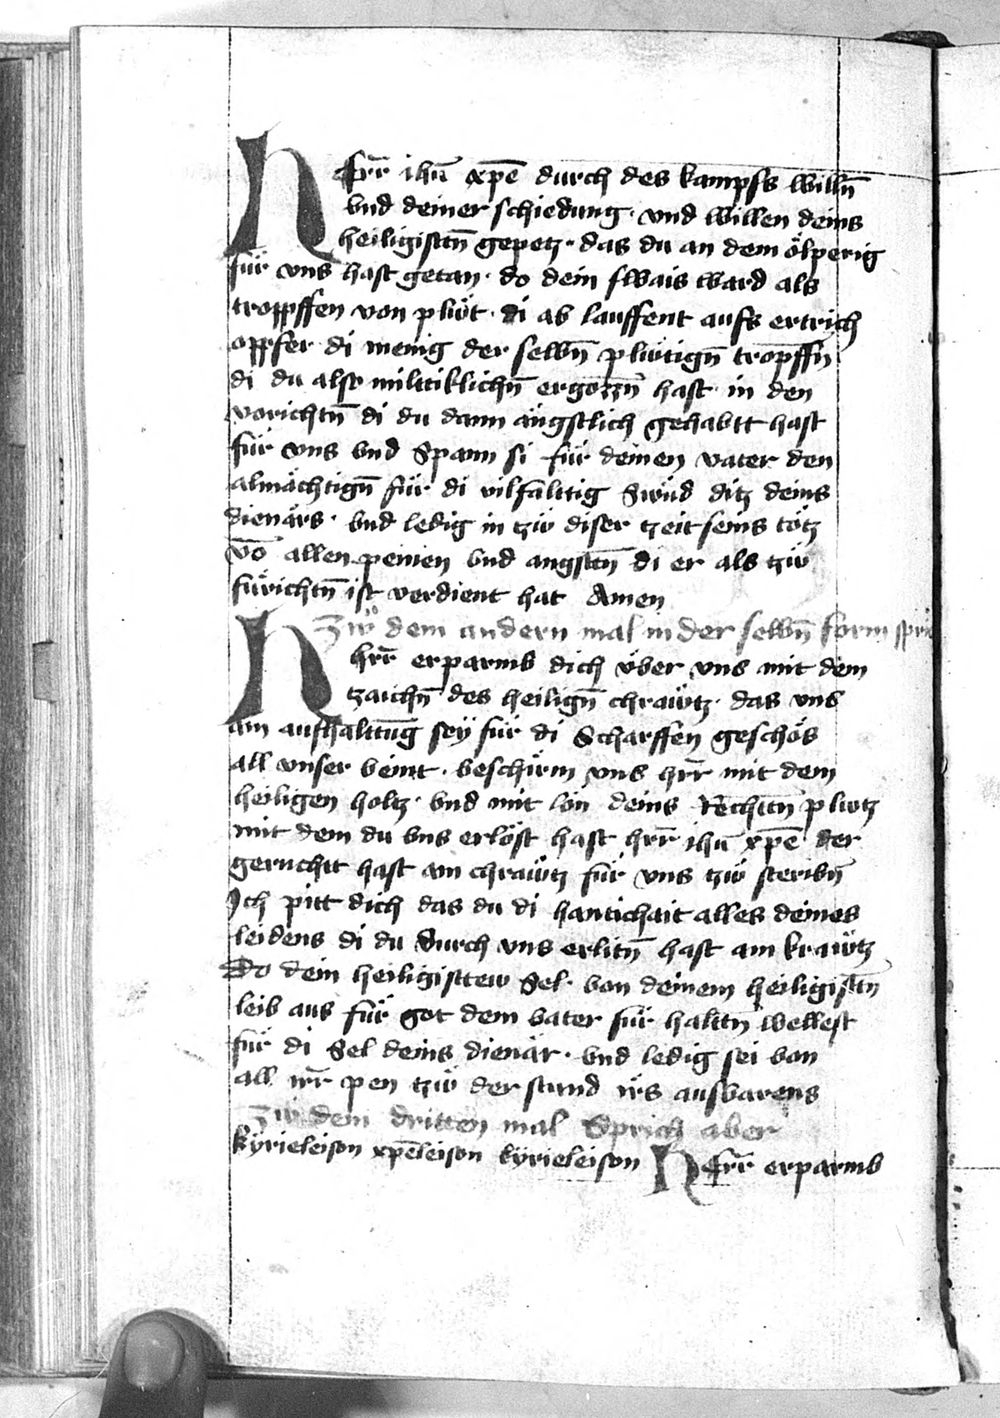 Herr̄ ihū xp̄e durch des kampfs willn̄
vnd deiner schiedung · vnd willen deins
heiligistn̄ gepetz · das du an dem ölperig
für vns hast getan · do dein swais ward als
troppffen von plüt · di ab lauffent aufs ertrich
opffer di menig der selbn̄ plütign̄ tropffn̄
di du also miltiklichn̄ ergozzn̄ hast in den
vorichtn̄ di du dann ängstlich gehabtt hast
für vns vnd Spann si für deinen vater den
almächtign̄ für di vilfälttig Sünd ditz deins
dienärs · vnd ledig in tzü diser tzeit seins tötz
vō allen peinen vnd angstn̄ di er als tzü
fürichtn̄ ist verdient hat Amen
Zü dem andern mal in der selbn̄ form sprich
Hhrr̄ erparmb dich über vns mit dem
tzaichn̄ des heilign̄ chräutz · das vns
am aufhalttūg sey für di Scharffen geschös
all vnser veint · beschirm vns hrr̄ mit dem
heiligen holtz · vnd mit lön deins Rechttn̄ plutz
mit dem du vns erlöst hast hrr̄ ihū xp̄e der
geruchtt hast am chräutz für vns tzü steribn̄
Ich pitt dich das du di hantichait alles deines
leidens di du durch vns erlitn̄ hast am kräutz
Do dein heiligistew Sel · von deinem heiligistn̄
leib aus für got dem vater für halttn̄ wellest
für di Sel deins dienär · vnd ledig sei van
all irr̄ pen tzü der stund irs ausvarens
Zü dem dritten mal Sprich aber
kyrieleison xp̄eleison kyrieleison Herr̄ erparmb